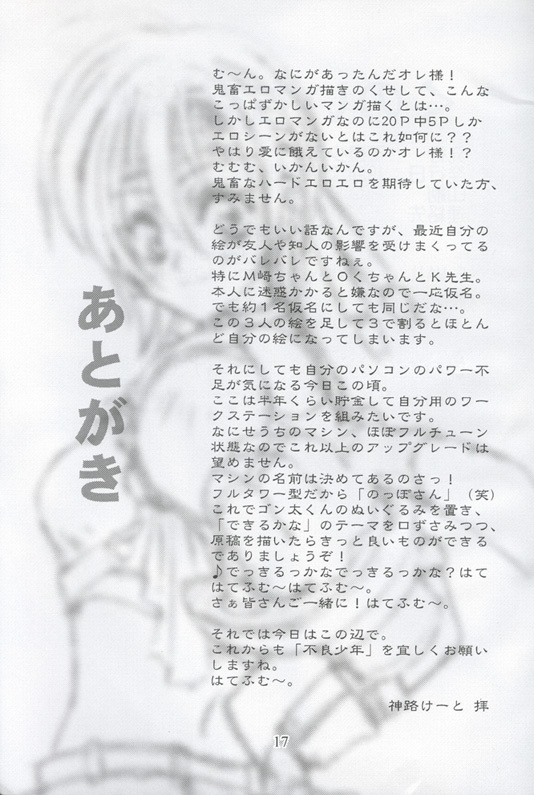 あとがき
む～ん。なにがあったんだオレ様！
鬼畜エロマンガ描きのくせして、こんな
こっぱずかしいマンガ描くとは…。
しかしエロマンガなのに20P中5Pしか
エロシーンがないとはこれ如何に？？
やはり愛に餓えているのかオレ様！？
むむむ、いかんいかん。
鬼畜なハードエロエロを期待していた方、
すみません。
どうでもいい話なんですが、最近自分の
絵が友人や知人の影響を受けまくってる
のがバレバレですねぇ。
特にM崎ちゃんとOくちゃんとK先生。
本人に迷惑かかると嫌なので一応仮名。
でも約1名仮名にしても同じだな…。
この3人の絵を足して3で割るとほとん
ど自分の絵になってしまいます。
それにしても自分のパソコンのパワー不
足が気になる今日この頃。
ここは半年くらい貯金して自分用のワー
クステーションを組みたいです。
なにせうちのマシン、ほぼフルチューン
状態なのでこれ以上のアップグレードは
望めません。
マシンの名前は決めてあるのさっ！
フルタワー型だから「のっぽさん」（笑）
これでゴン太くんのぬいぐるみを置き、
「できるかな」のテーマを口ずさみつつ、
原稿を描いたらきっと良いものができる
でありましょうぞ！
♪でっきるっかなでっきるっかな？はて
はてふむ～はてはてふむ～。
さぁ皆さんご一緒に！はてふむ～。
それでは今日はこの辺で。
これからも「不良少年」を宜しくお願い
しますね。
はてふむ～。
神路けーと 拝
17